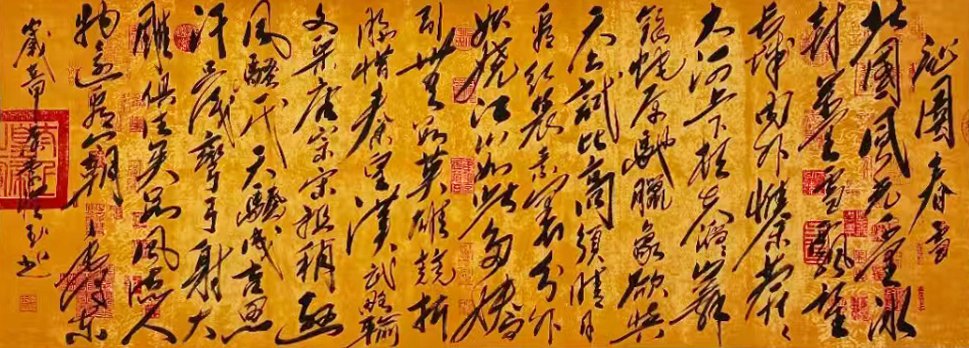 沁園春雪
北國風光千里冰
封萬里雪飄望
長城内外惟余莽々
大河上下頓失滔滔山舞
銀蛇原馳蠟象欲與
天公試比高須晴日
看紅裝素裹分外
妖嬈江山如此多嬌
引無數英雄競折
腰惜秦皇漢武略輸
文采唐宗宋祖稍遜
風騷一代天驕成吉思
汗只識彎弓射大
雕俱往矣數風流人
物還看今朝毛澤東
歲